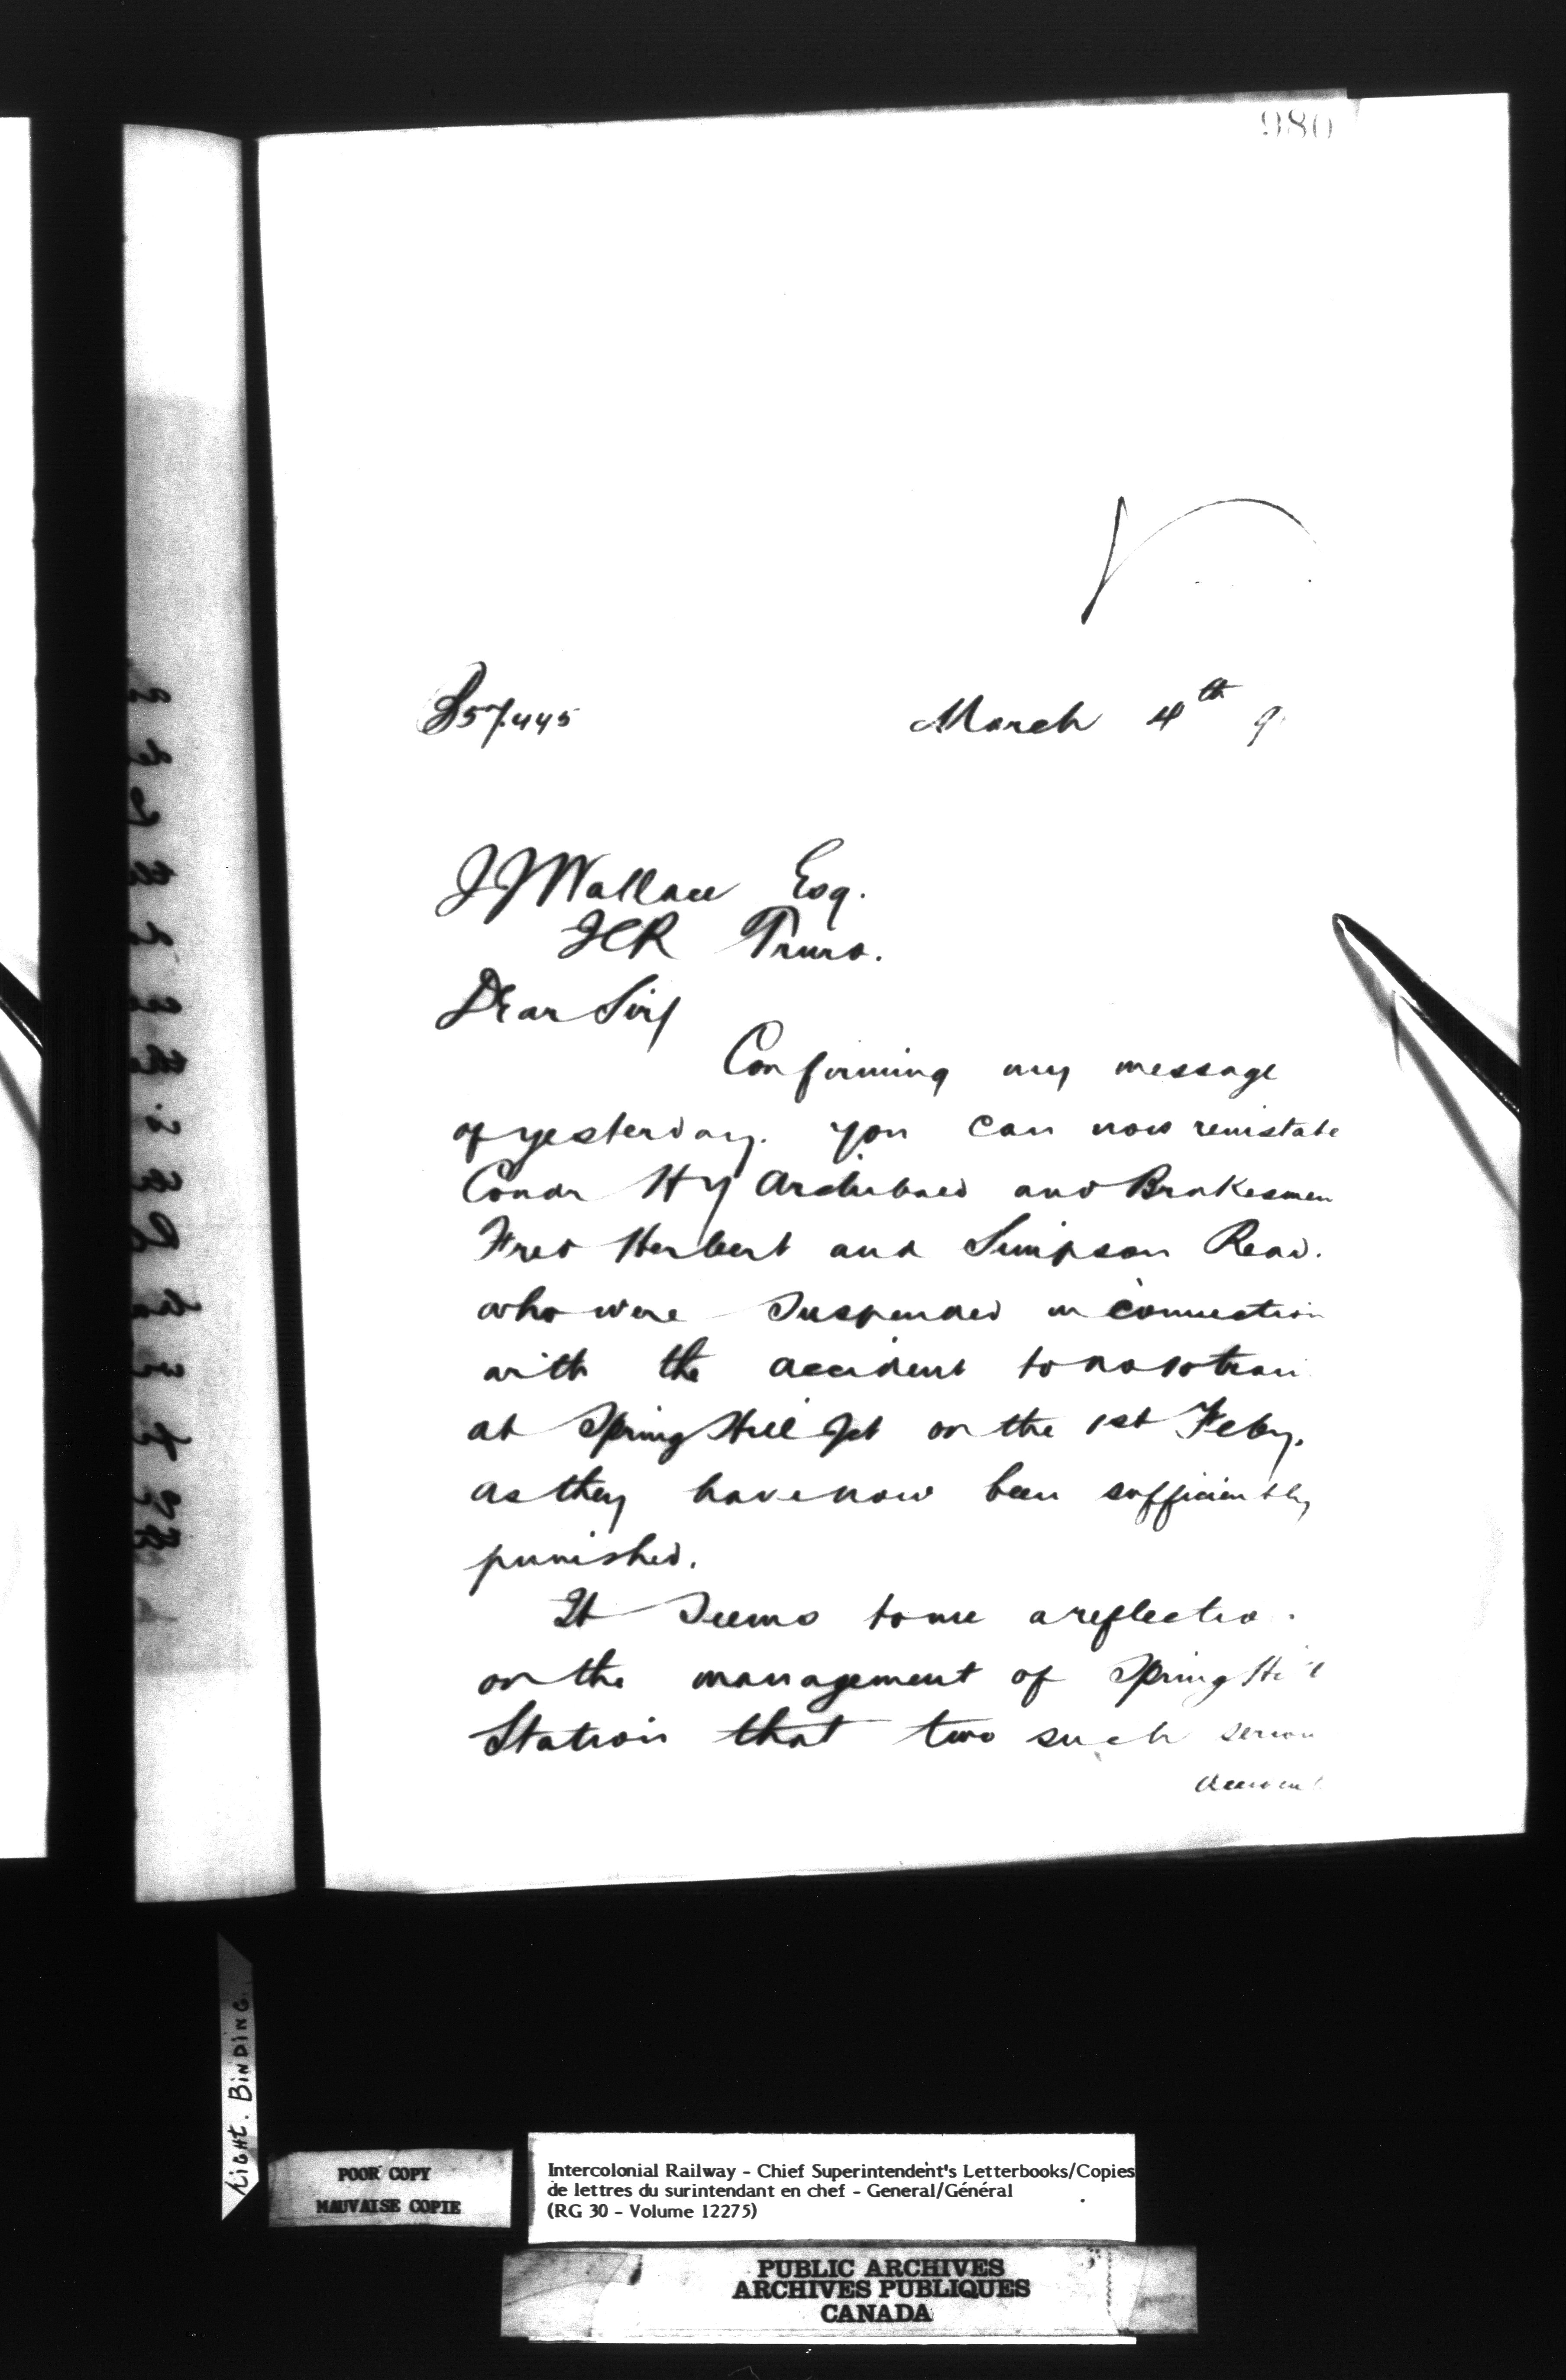 980
57.445 March 4th 9
J J Wallace Esq.
ICR Truro.
Dear Sir/
Confirming my message
of yesterday. you can now reinstate
Condr Hy Archibald and Brakesmen
Fred Herbert and Simpson Read.
who were suspended in connection
with the accident to no 10 train
at Spring Hill Jct on the 1st Feby.
as they have now been sufficiently
punished.
It seems to me a reflectio
on the management of Spring Hill
Station that two such seriou
LIGHT. BINDING
POOR COPY
MAUVAISE COPIE
Intercolonial Railway - Chief Superintendent's Letterbooks/Copies
de lettres du surintendant en chef - General/Général
(RG 30 - Volume 12275)
PUBLIC ARCHIVES
ARCHIVES PUBLIQUES
CANADA